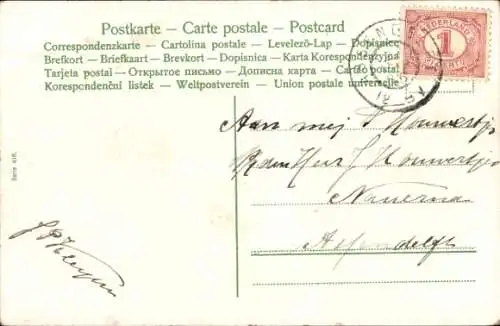 Postkarte – Carte postale – Postcard
Correspondenzkarte – Cartolina postale – Levelező-Lap – Dopisnice
Brefkort – Briefkaart – Brevkort – Dopisnica – Karta Korespondencyjna
Tarjeta postal – Открытое письмо – Дописна карта – Cartão postal
Korespondenční lístek – Weltpostverein – Union postale universelle
NEDERLAND
1
CENT
Aan mej Houwertje
den Heer J Houwertjes
Nauerna
Assendelft